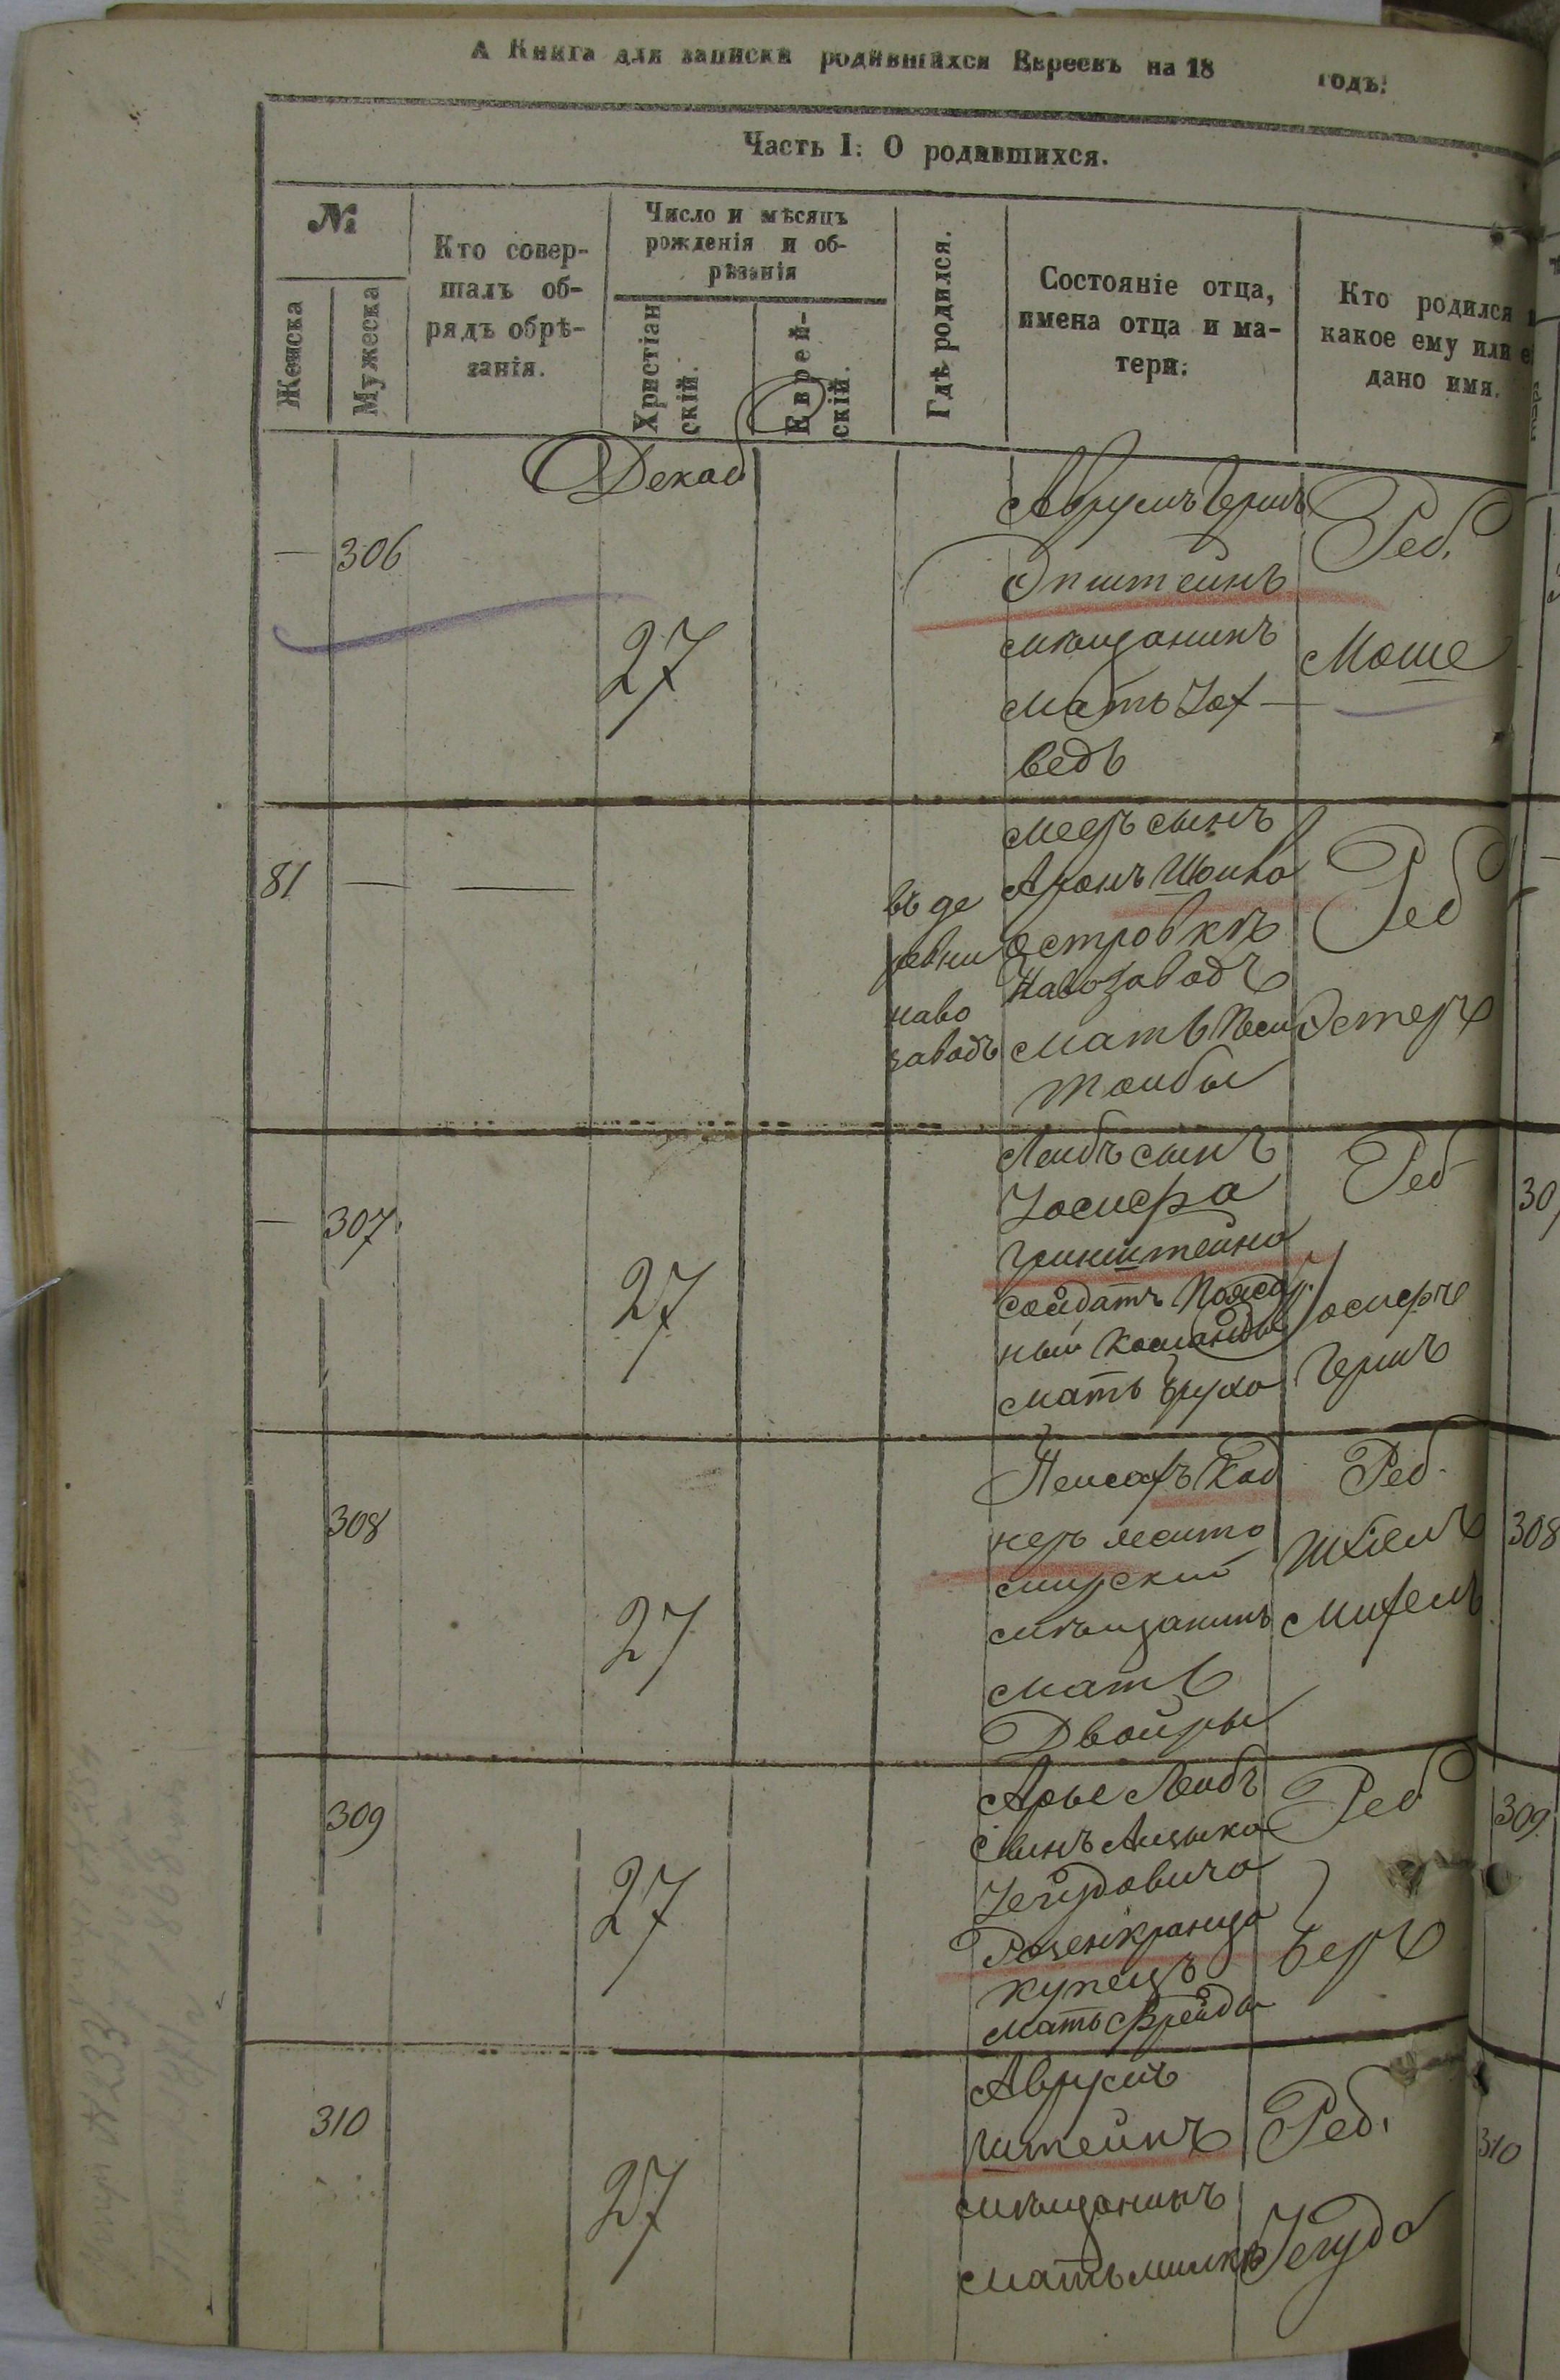 А Книга для записки родившихся Евреевъ на 18 годъ:
Часть I: О родившихся.
№
Женска
Мужеска
Кто совер-
шалъ об-
рядъ обрѣ-
занія.
Число и мѣсяцъ
рожденія и об-
рѣзанія
Христіан
скій.
Еврей-
скій.
Гдѣ родился.
Состояніе отца,
имена отца и ма-
тери.
Кто родился и
какое ему или е
дано имя.
Декаб
— 306
27
Аврумъ Гершъ
Эпштейнъ
мещанинъ
мать Іох-
ведъ
Реб.
Моше
81 — —
въ де
ревни
наво
заводъ
Мееръ сынъ
Аронъ Шоила
Островкъ
Навозаводъ
мать Песи
тоибы
Реб
Эстеръ
— 307.
27
Леибъ сынъ
Іосифа
Гринштейна
солдатъ Пожар
ный Команды
мать Бруха
Реб
Іосифъ
Гершъ
308
27
Пейсахъ Кад
неръ жито
мирский
мѣщанинъ
мать
Двойры
Реб.
Ихіелъ
Михелъ
309
27
Арье Леибъ
сынъ Аицыка
Іегудовича
Розенкранца
купецъ
мать Фрейда
Реб
Беръ
310
27
Аврумъ
Штейнъ
мѣщанинъ
мать Милка
Реб.
Іегуда
30
308
309
310